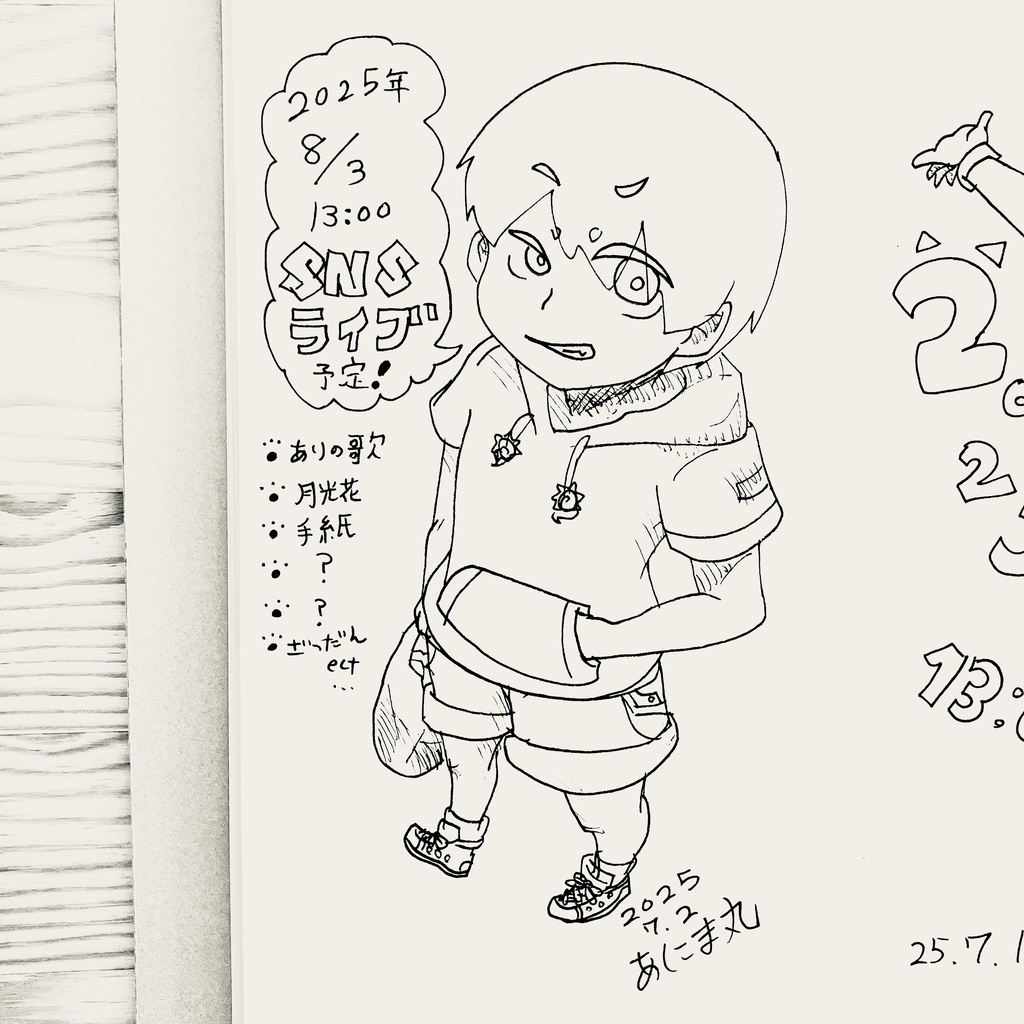 2025年
8/3
13:00
SNS
ライブ
予定!
ありの歌
月光花
手紙
?
?
ざつだん
ect
...
2025
7.2
あにま丸
2.
2
13:
25.7.1